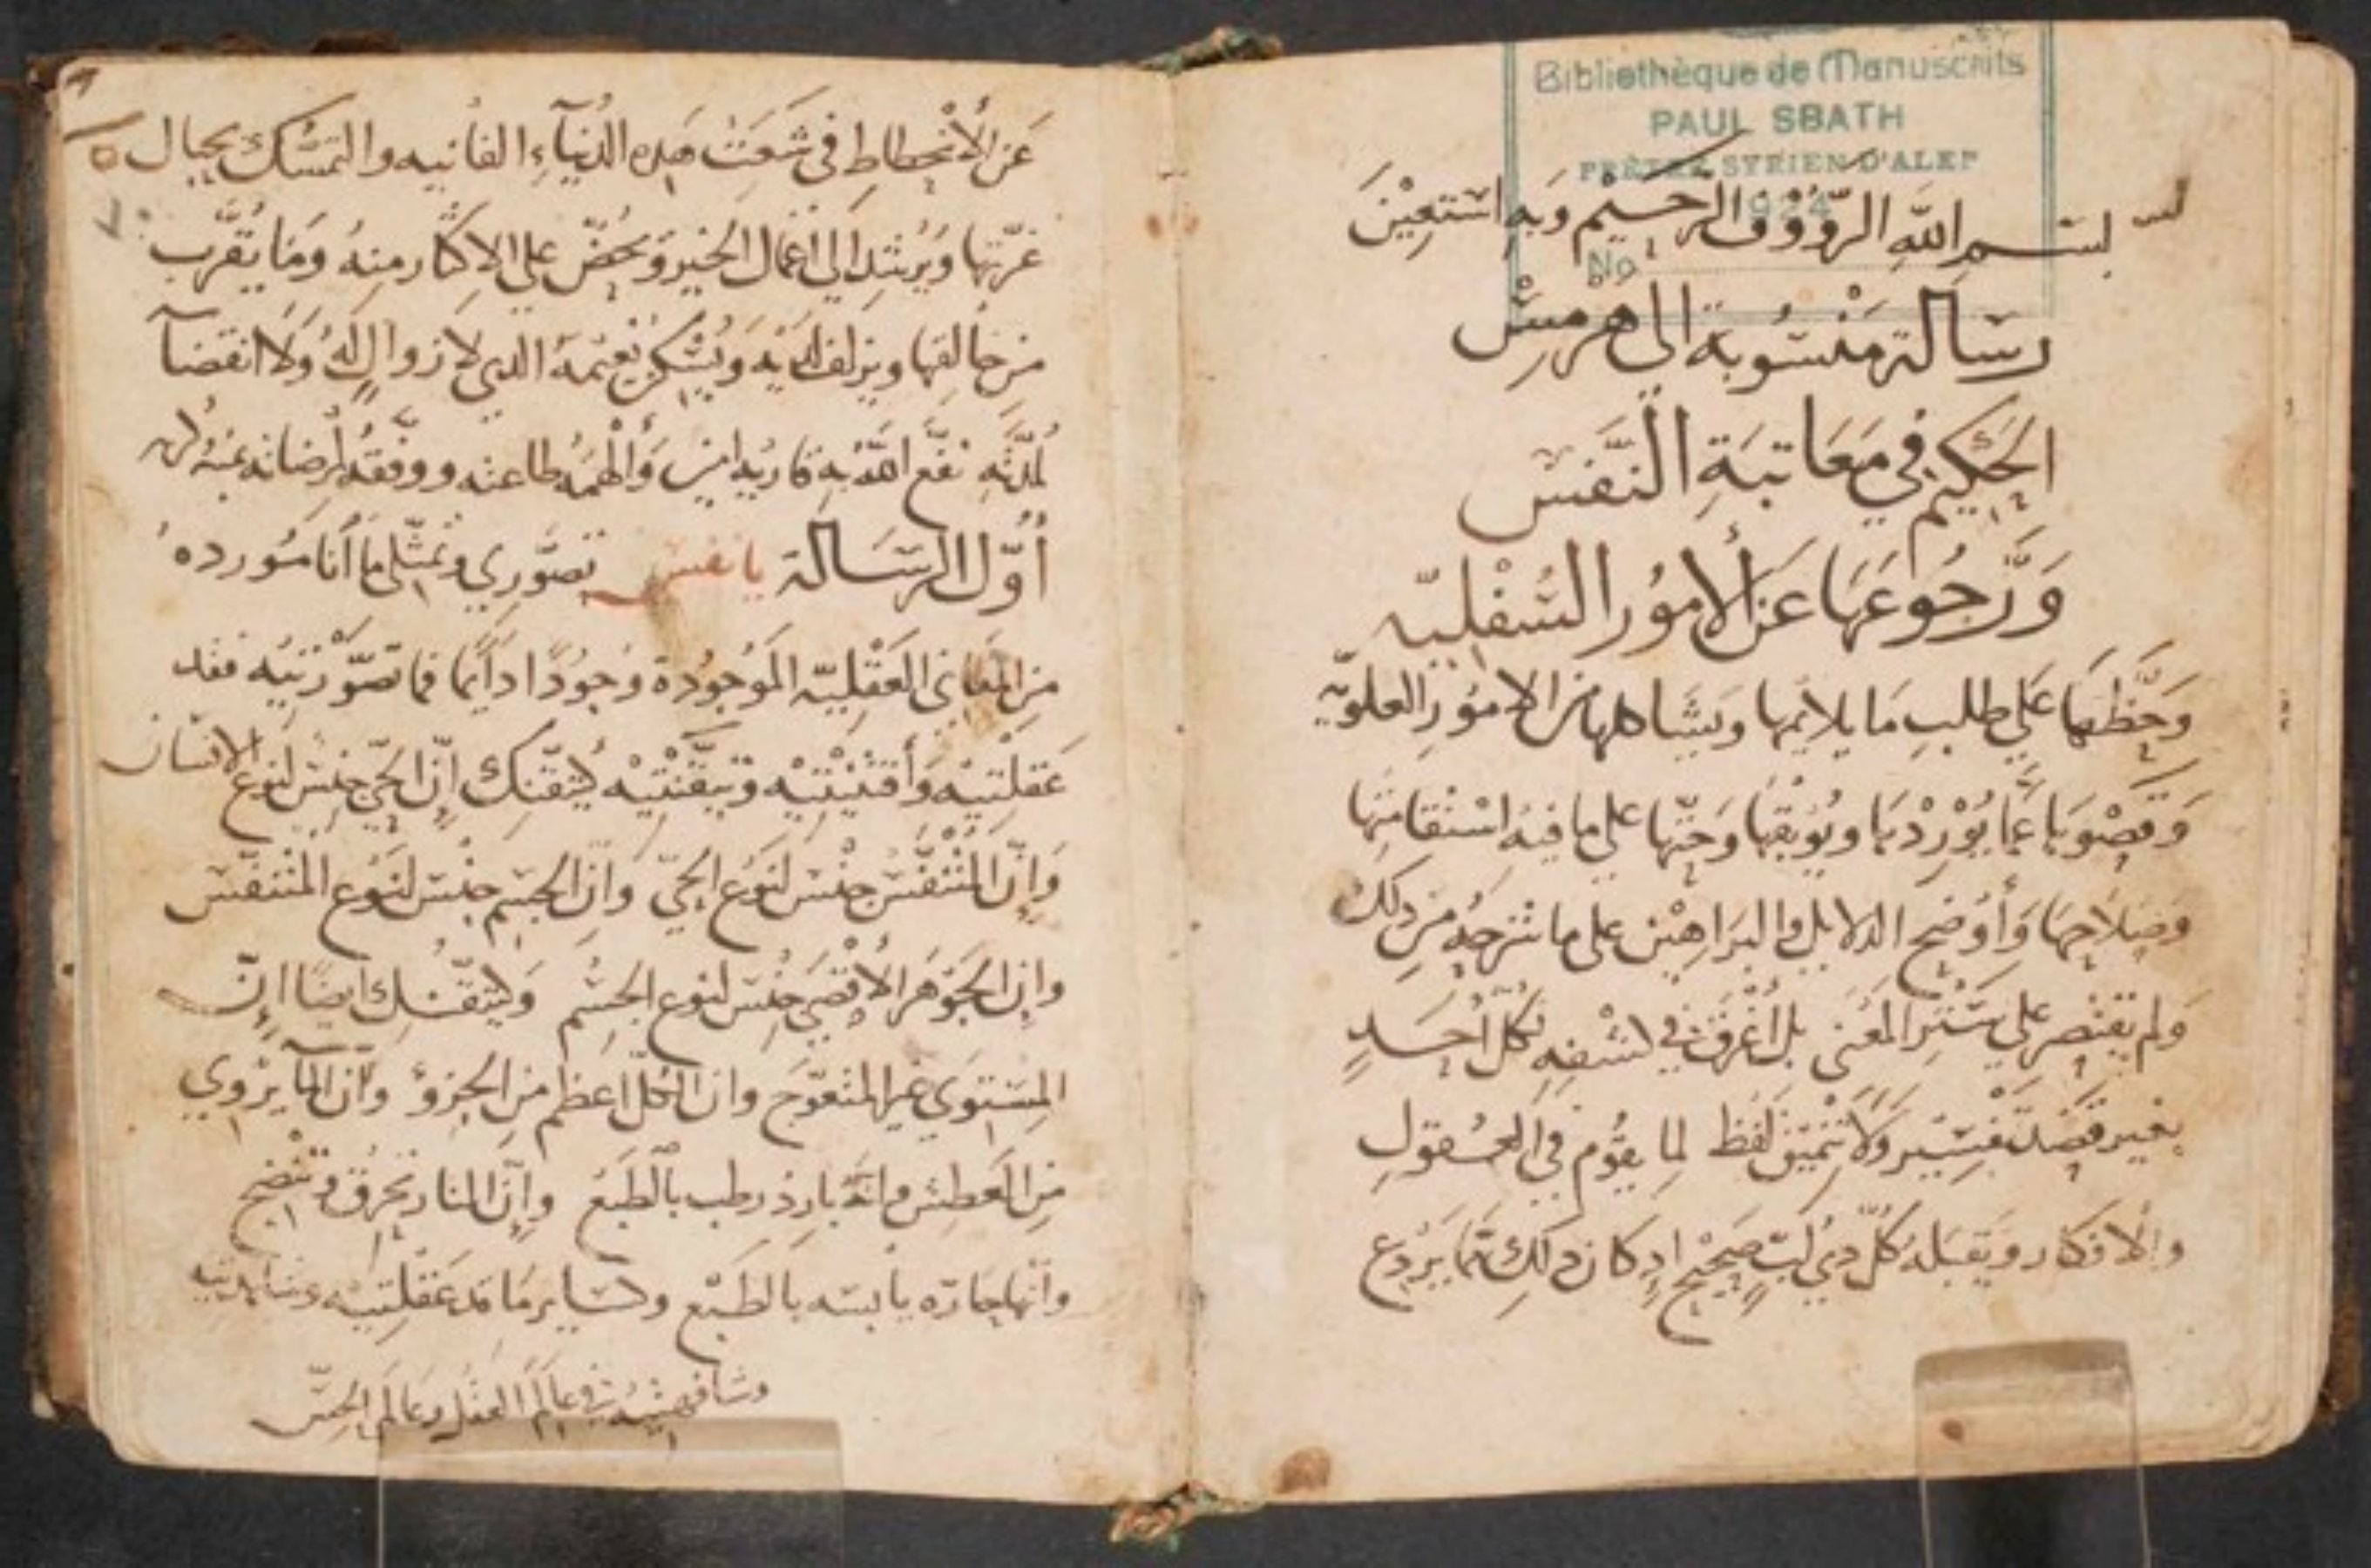 Bibliothèque de Manuscrits
PAUL SBATH
PRÊTRE SYRIEN D'ALEP
No
بسم الله الرَّوُوْف الرَّحيْم وَبهِ استعِيْنَ
رسَالة مَنْسُوبة الي هرْمسْ
الحَكيم في مَعَاتبَةِ النَّفسْ
وَرَّجُوعهَا عَن الأمُور السُفْليّه
وَحَظهَا عَلي طلبِ مَا يلايمها وَيشَاكلها من الامُورِ العلويّه
عَمَّا يُوْرِدْهَا ويُوْبقهَا وَحَثّها علي ما فيهُ اسْتقامتهَا
وَصَلاحِهَا وَأوْضح الدلايل والبرَاهيْن على ما شرَحهُ من دلكَ
وَلم يقتصر علي سَتْرِ المعْني بل أغرَق في كشْفهِ لكل أحَدٍ
بغير قصَد تفسِيْر وَلاَ تنميْق لَفظ لما يقوُم في العُقول
والافكار ويَقبَلهُ كُلّ دي لُبّ صَحيْح اد كان دلك ممَّا يَرْدع
عَن الأنحطاط في شَعَث هَده الدُنيآءِ الفانيه والتمسُّك بحبال
غرّتها وَيُرشد الي أعْمال الخير وَيحُضّ علي الاكثار منهُ وَمَا يُقَرّب
من خَالقها ويزلف لدَيْه وَيُشْكر نعْمَة الدي لا زوال لهُ وَلا انقضآ
لمُدَّته نفَع اللهُ به قاريه امين وَألهمَهُ طاعته ووفقهُ لِمرضاته
أوّل الرسَالة يا نفس تصَوَّري وتمثّلي مَا أنا مُورده
من المعَاني العَقْليّه المَوجُودة وُجودًا دَايمًا فما تصَوَّرتيْه فقد
عَقلْتيْه وَأقتنيْتيْه وَتيَقَّنْتيْه كَتيَقّنك إنّ الحَيّ جنس لنوع الانسان
وَإنّ المُتْنفَّس جنْس لنوْع الحَيّ وَان الجسْم جنْس لنَوْع المُتنفّس
وان الجَوْهَر الأقصَي جنْس لنوع الجسْم وَكَتيَقّنك ايضًا إنّ
المستوي غير المتعَوّج وان الكُلّ أعظم من الجزؤ وَان المآ يرْوي
من العَطش وانهُ باردْ رطب بالطَبْع وإنّ النار تحْرق وَتنْضج
وانّها حَارّه يابسَه بالطَبْع وسَاير مَا قد عَقَلْتيْه
وشافهتيْه في عَالَم العَقْل وعَالَم الحسّ